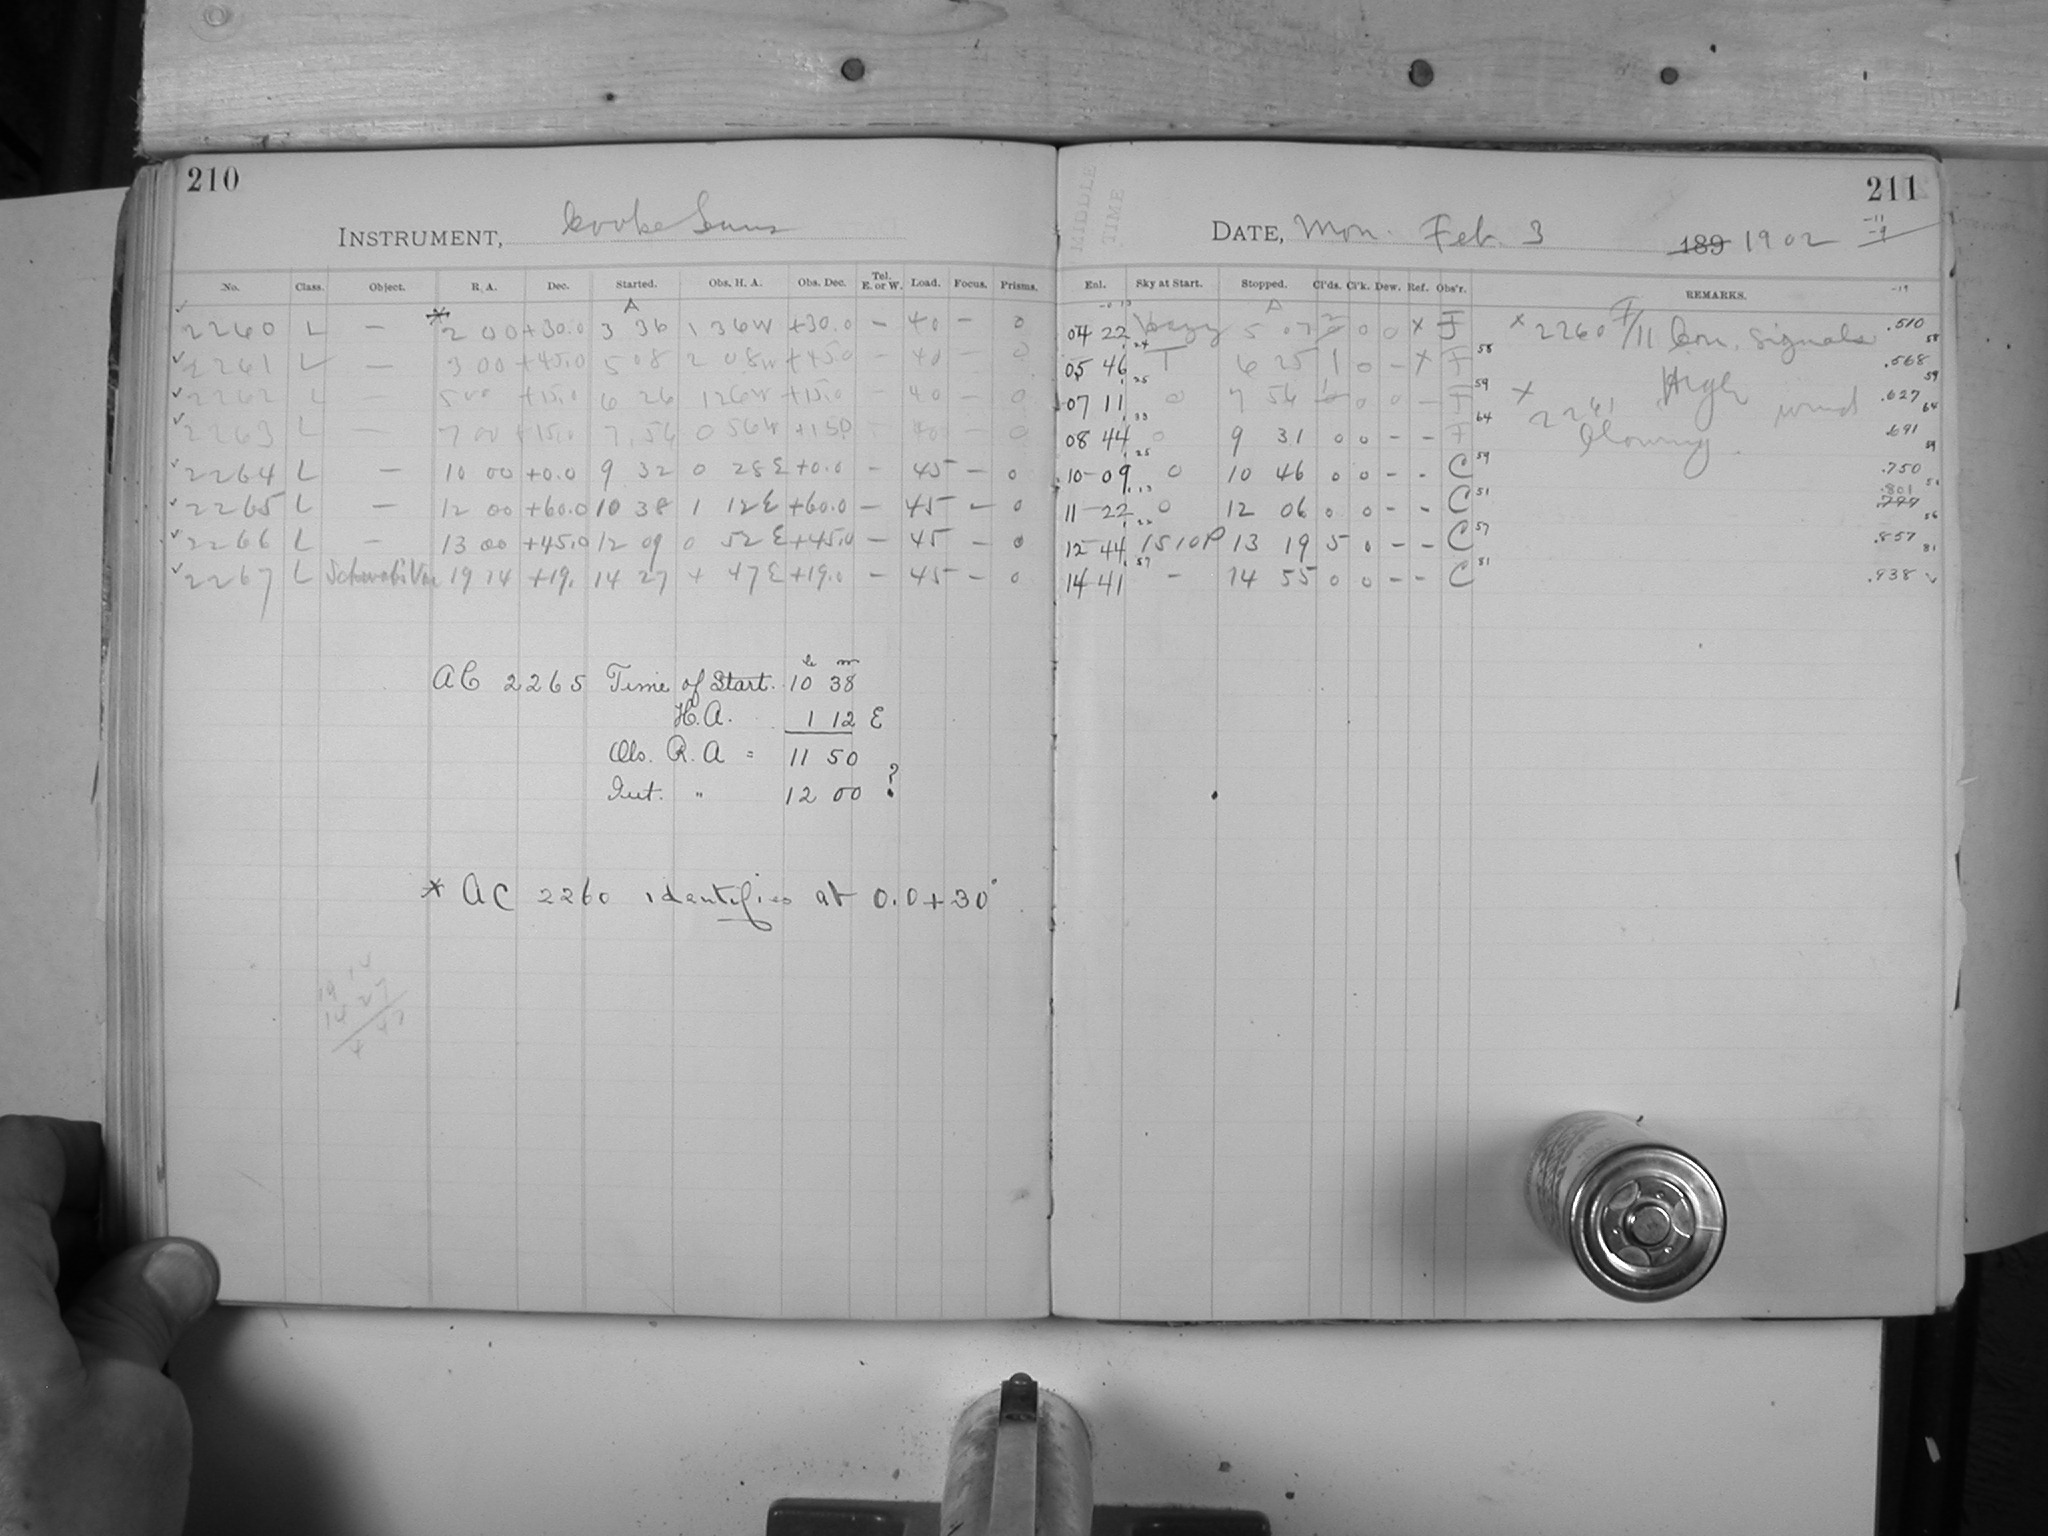 210
INSTRUMENT, Cooke Lens
No. Class. Object. R. A. Dec. Started. Obs. H. A. Obs. Dec. Tel. E. or W. Load. Focus. Prisms.
A
2260 L — * 2 00 +30.0 3 36 1 36W +30.0 — 40 — 0
2261 L — 3 00 +45.0 5 08 2 08W +45.0 — 40 — 0
2262 L — 5 00 +15.0 6 26 1 26W +15.0 — 40 — 0
2263 L — 7 00 +15.0 7 56 0 56W +15.0 — 40 — 0
2264 L — 10 00 +0.0 9 32 0 28E +0.0 — 45 — 0
2265 L — 12 00 +60.0 10 38 1 12E +60.0 — 45 — 0
2266 L — 13 00 +45.0 12 09 0 52E +45.0 — 45 — 0
2267 L 19 14 +19. 14 27 + 47E +19.0 — 45 — 0
h m
AC 2265 Time of Start. 10 38
H.A. 1 12 E
Obs. R.A = 11 50
Int. " 12 00 ?
* AC 2260 identifies at 0.0+30°
19 14
14 27
4 47
MIDDLE TIME
211
DATE, Mon. Feb. 3 189 1902
-11
-9
Enl. Sky at Start. Stopped. Cl'ds. Cl'k. Dew. Ref. Obs'r. REMARKS.
-19
A
04 22 Hazy 5 07 2 0 0 X F × 2260 F/11 Con. signals .510
05 46 T 6 25 1 0 — X F 58 .568
07 11 0 7 56 0 0 — F 59 × 2261 High wind .627
08 44 0 9 31 0 0 — — F 64 blowing. .691
10-09 0 10 46 0 0 — — C 59 .750
11-22 0 12 06 0 0 — — C 51 .801 .777
12-44 1510P 13 19 5 0 — — C 57 .857
14 41 — 14 55 0 0 — — C 81 .938